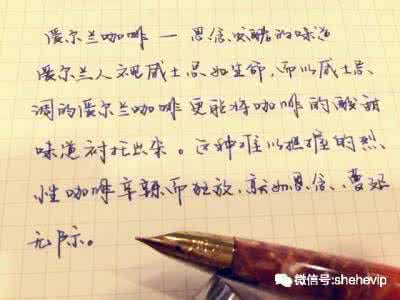 爱尔兰咖啡 — 思念发酵的味道
爱尔兰人视威士忌如生命，而以威士忌
调的爱尔兰咖啡更能将咖啡的酸甜
味道衬托出来。这种难以的烈
性咖啡辛辣而狂放，就如思念，蔓延
无际。
微信号:shehevip